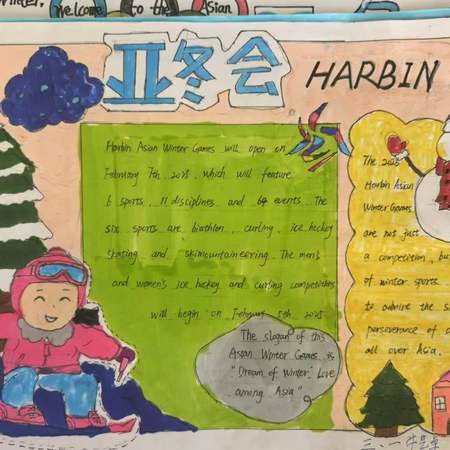 Winter. Welcome to the Asian
亚冬会 HARBIN
Harbin Asian Winter Games will open on
February 7th, 2025, which will feature
6 sports, 11 disciplines and 64 events. The
six sports are biathlon, curling, ice hockey
skating and skimountaineering. The man's
and women's ice hockey and cursing competitions
will begin on February 5th, 2025
The slogan of this
Asian Winter Games is
"Dream of Winter, Love
among Asia"
The 2025
Harbin Asian
Winter Games
are not just
a competition, bu
of winter sports
to admire the s
perseverance of a
all over Asia.
三、一